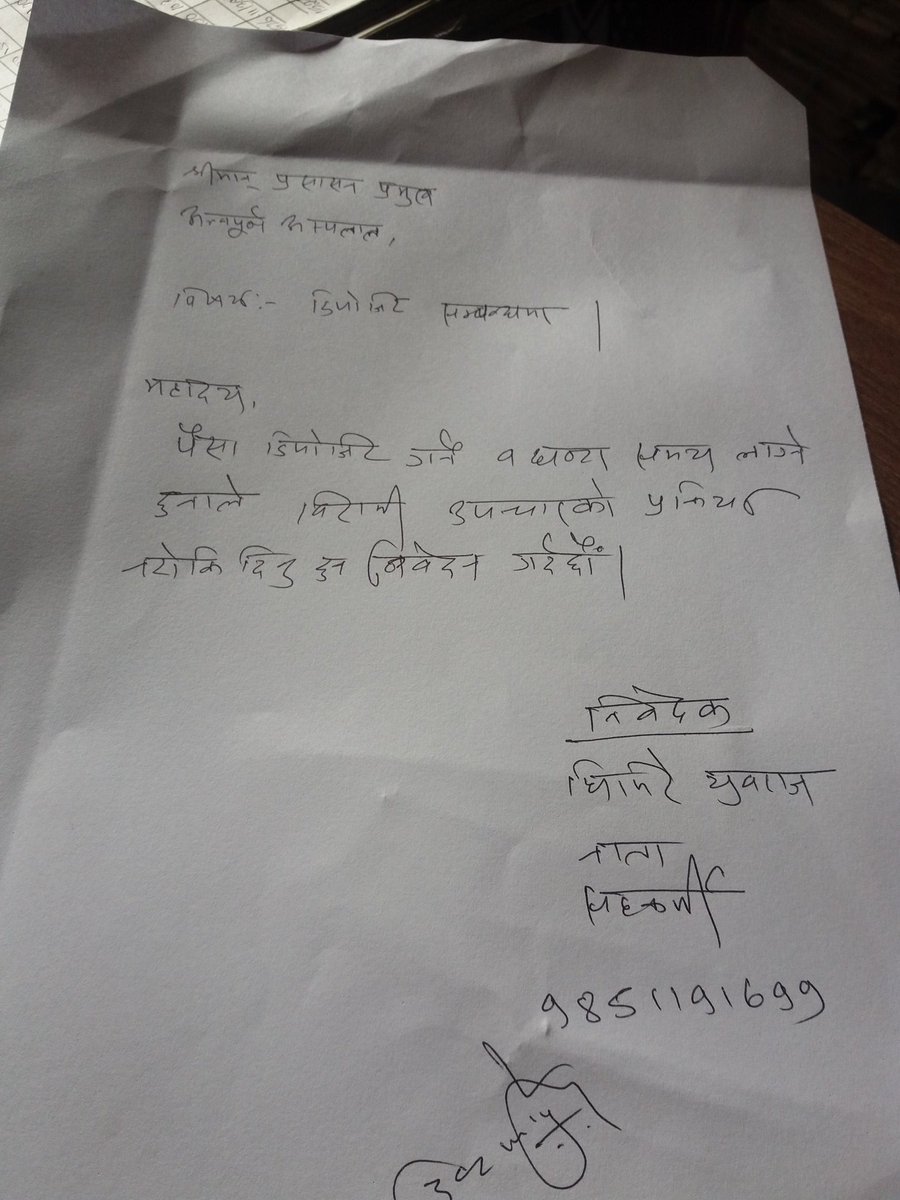 श्रीमान् प्रसासन प्रमुख
अन्नपूर्ण अस्पताल,
विषयः- डिपोजिट सम्बन्धमा |
महोदय,
पैसा डिपोजिट गर्न १ घण्टा समय लाग्ने
हुनाले बिरामी उपचारको प्रक्रिया
नरोकि दिनु हुन निवेदन गर्दछौं |
निवेदक
घिमिरे युवराज
नाता
सहकर्मी
9851191699